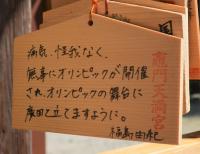 病気、怪我なく、
無事にオリンピックが開催
され、オリンピックの舞台に
立てますように。
福島由紀
竈門天満宮